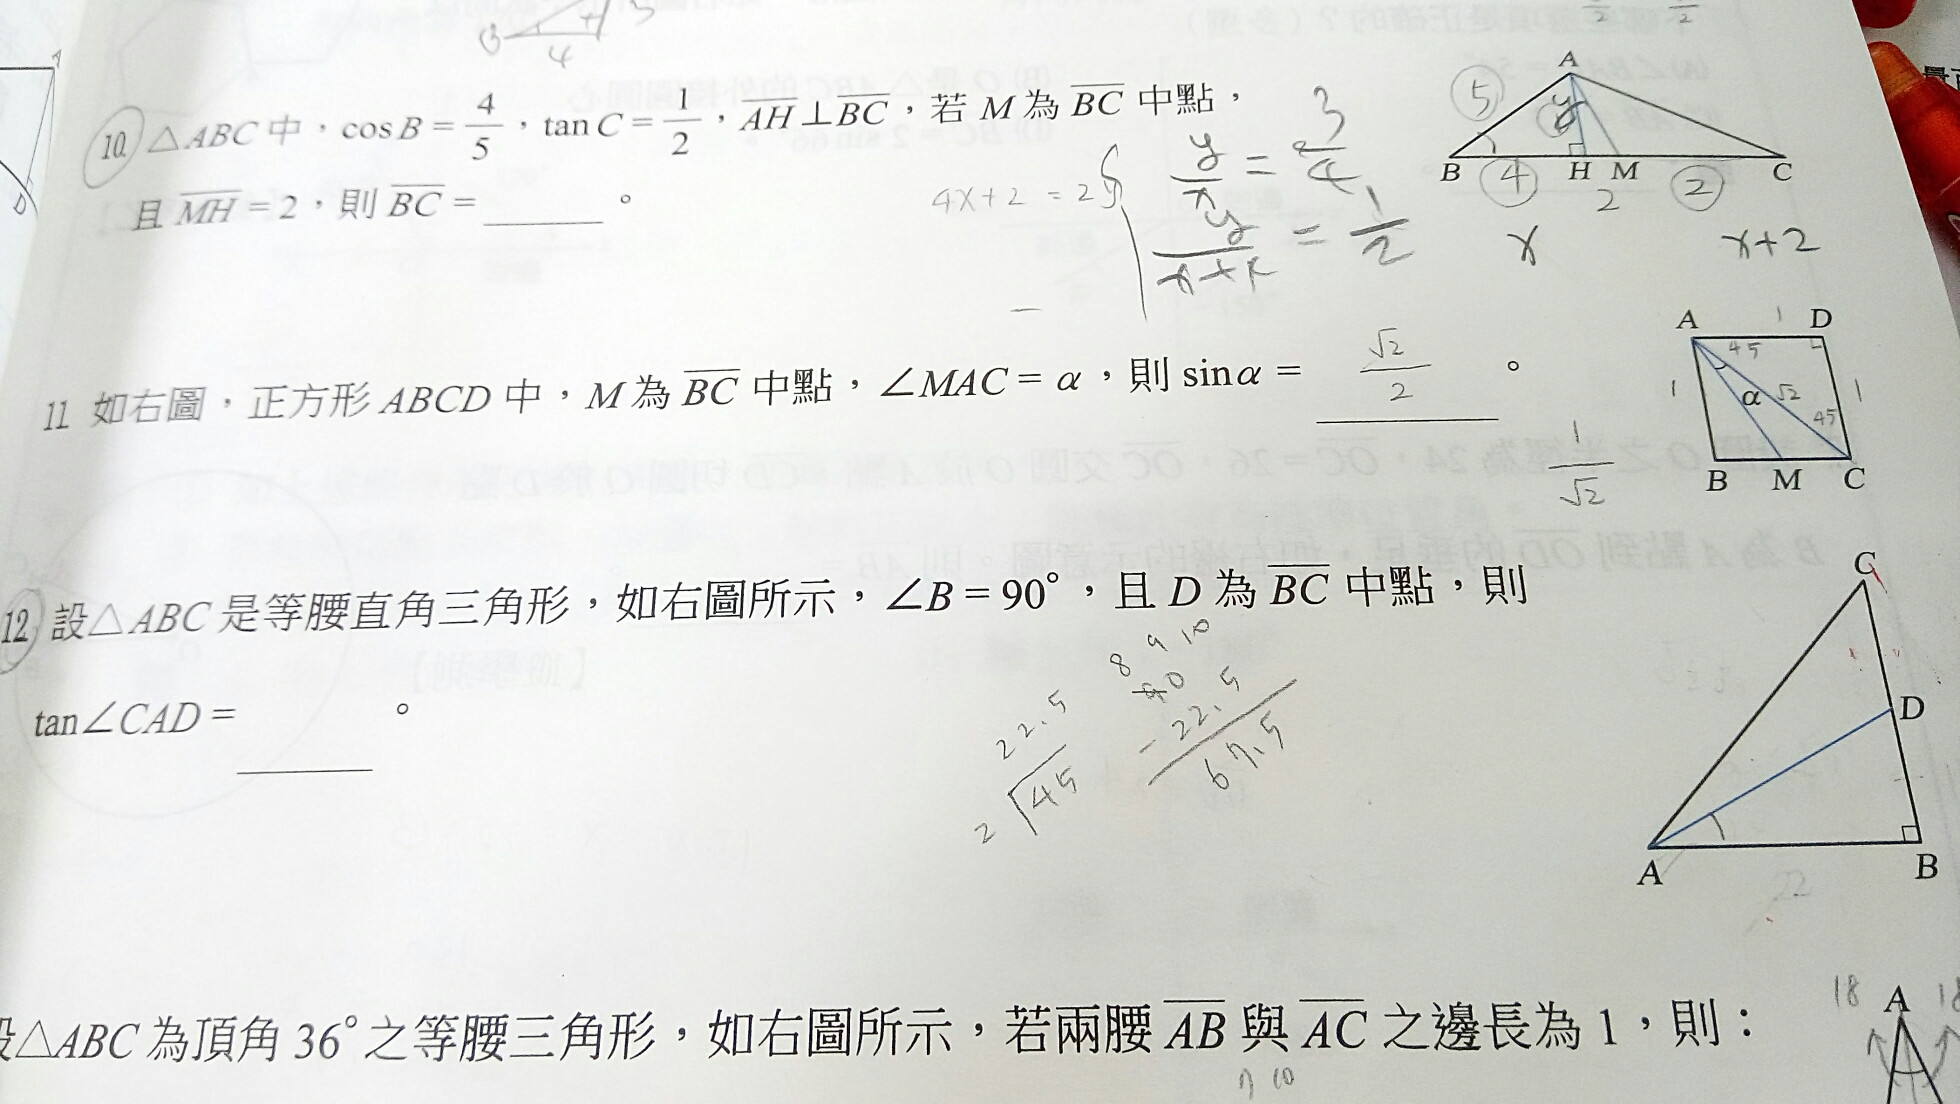 3
4
10. △ABC 中，cos B = 4/5，tan C = 1/2，AH⊥BC，若 M 為 BC 中點，
且 MH = 2，則 BC = ______。
4x+2 = 2y
y/x = 3/4
y/x+x = 1/2
A
5
y
B 4 H M 2 C
2
x
x+2
11. 如右圖，正方形 ABCD 中，M 為 BC 中點，∠MAC = α，則 sinα = √2/2。
1/√2
A 1 D
45
1 α √2 1
45
B M C
12. 設△ABC 是等腰直角三角形，如右圖所示，∠B = 90°，且 D 為 BC 中點，則
tan∠CAD = ______。
8 9 10
90
- 22.5
67.5
22.5
2 45
C
D
A
B
設△ABC 為頂角 36° 之等腰三角形，如右圖所示，若兩腰 AB 與 AC 之邊長為 1，則：
18 A 18